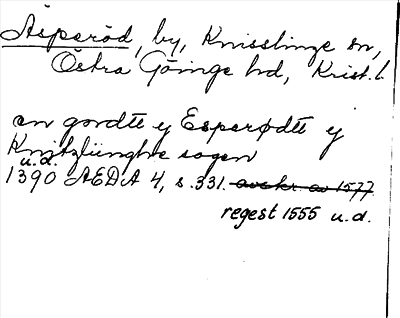 Äsperöd, by, Knisslinge sn,
Östra Göinge hd, Krist. l.
en gordtt y Esperødtt y
Knitzliinghe sogen
u.d.
1390 ÆDA 4, s. 331. avskr. av 1577
regest 1555 u.d.